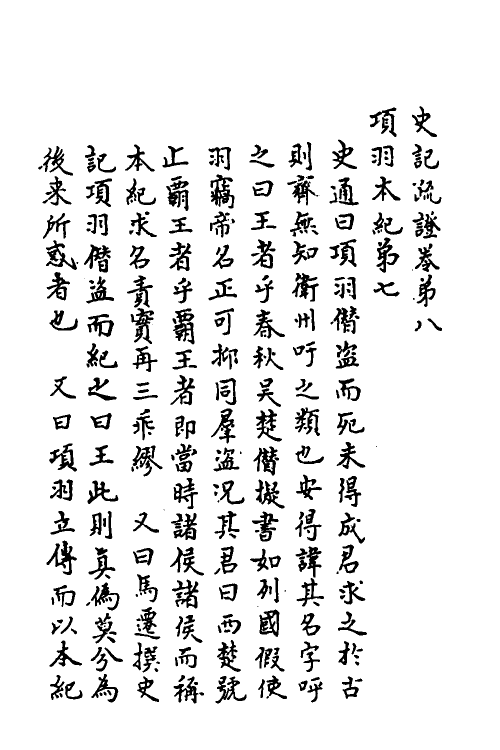 史記疏證卷第八
項羽本紀第七
史通曰項羽僭盜而死未得成君求之於古
則齊無知衛州吁之類也安得諱其名字呼
之曰王者乎春秋吳楚僭擬書如列國假使
羽竊帝名正可抑同羣盜況其君曰西楚號
止霸王者乎霸王者即當時諸侯諸侯而稱
本紀求名責實再三乖繆　又曰馬遷撰史
記項羽僭盜而紀之曰王此則真偽莫分為
後来所惑者也　又曰項羽立傳而以本紀